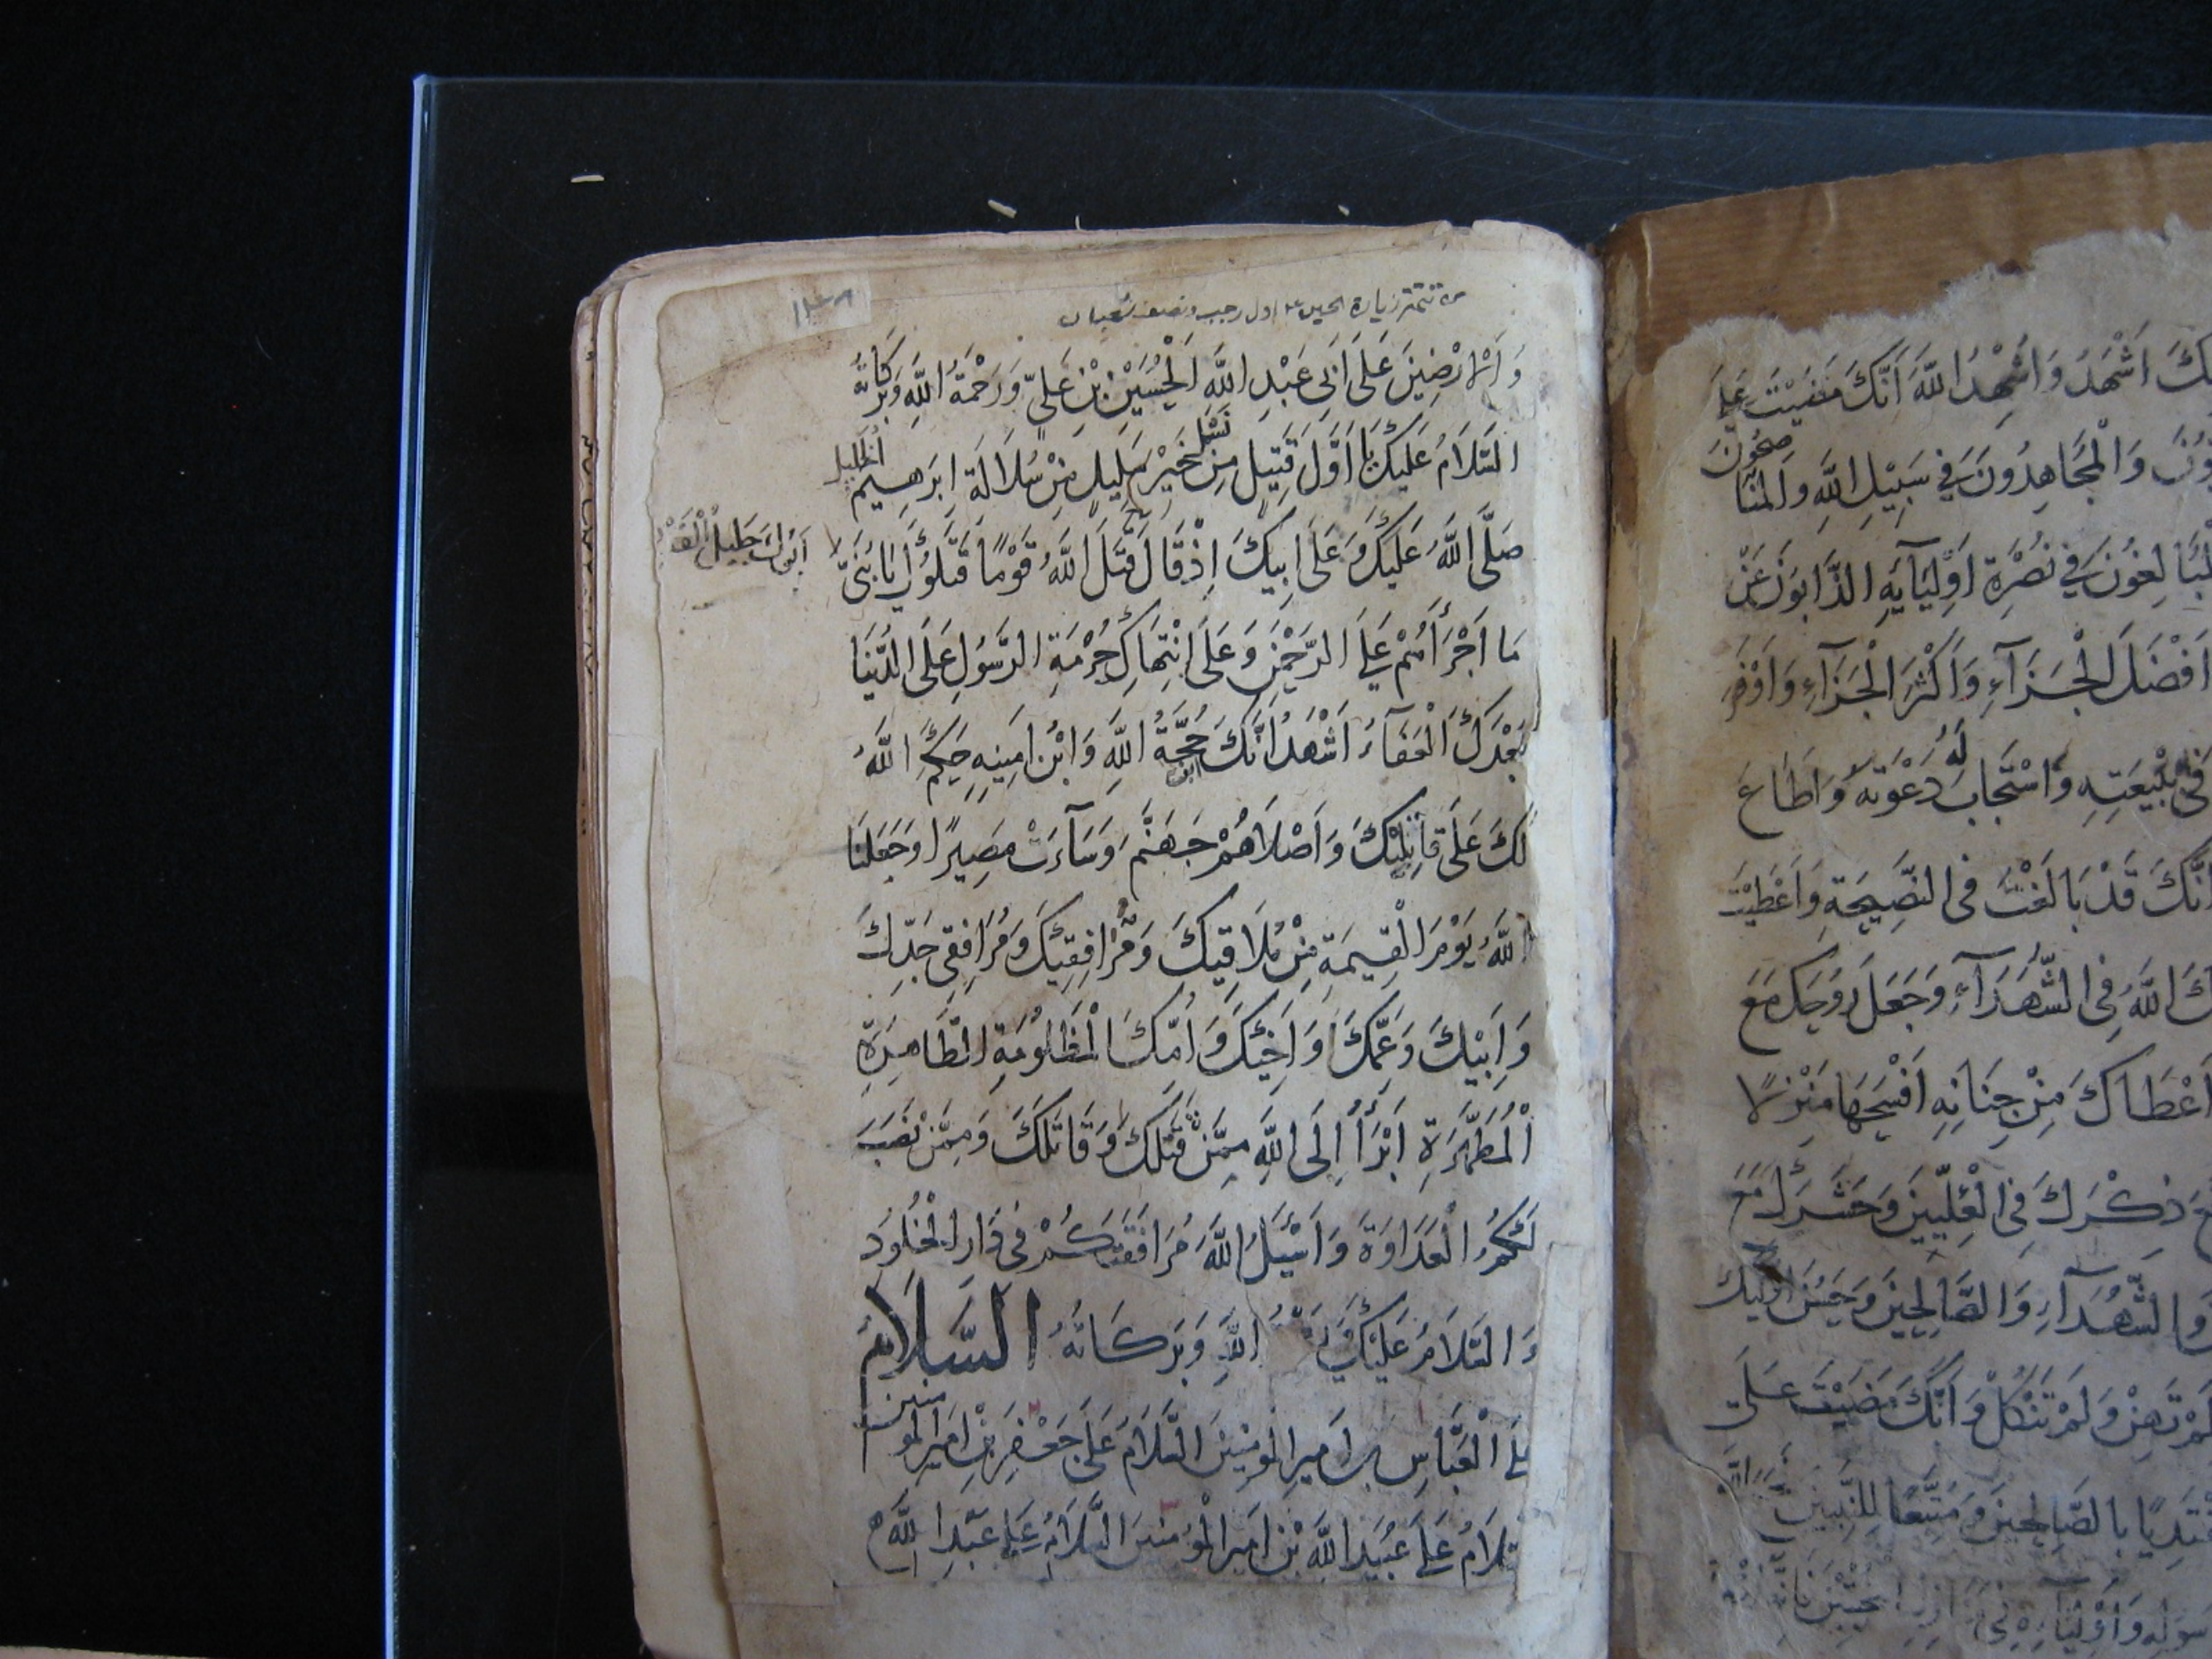 من تتمة زيارة الحسين ع اول رجب ونصف شعبان
وَالْاَرَضِيْنَ عَلَى اَبِى عَبْدِ اللهِ الْحُسَيْنِ بْنِ عَلِىٍّ وَرَحْمَةُ اللهِ وَبَرَكَاتُهُ
السَّلَامُ عَلَيْكَ يَا اَوَّلَ قَتِيلٍ مِنْ نَسْلِ خَيْرِ سَلِيلٍ مِنْ سُلَالَةِ اِبْرَهِيمَ الْخَلِيلِ
صَلَّى اللهُ عَلَيْكَ وَعَلَى اَبِيكَ اِذْ قَالَ قَتَلَ اللهُ قَوْمًا قَتَلُوكَ يَا بُنَىَّ
مَا اَجْرَأَهُمْ عَلَى الرَّحْمٰنِ وَعَلَى انْتِهَاكِ حُرْمَةِ الرَّسُولِ عَلَى الدُّنْيَا
بَعْدَكَ الْعَفَاءُ اَشْهَدُ اَنَّكَ ابْنُ حُجَّةِ اللهِ وَابْنُ اَمِينِهِ حَكَمَ اللهُ
لَكَ عَلَى قَاتِلِيْكَ وَاَصْلَاهُمْ جَهَنَّمَ وَسَآءَتْ مَصِيرًا وَجَعَلَنَا
اللهُ يَوْمَ الْقِيمَةِ مِنْ مُلَاقِيكَ وَمُرَافِقِيْكَ وَمُرَافِقِى جَدِّكَ
وَاَبِيْكَ وَعَمِّكَ وَاَخِيْكَ وَاُمِّكَ الْمَظْلُومَةِ الطَّاهِرَةِ
الْمُطَهَّرَةِ اَبْرَأُ اِلَى اللهِ مِمَّنْ قَتَلَكَ وَقَاتَلَكَ وَمِمَّنْ نَصَبَ
لَكُمُ الْعَدَاوَةَ وَاَسْئَلُ اللهَ مُرَافَقَتَكُمْ فِى دَارِ الْخُلُودِ
وَالسَّلَامُ عَلَيْكَ اللهِ وَبَرَكَاتُهُ السَّلَامُ
عَلَى الْعَبَّاسِ بن اَمِيرِ الْمُومِنِينَ السَّلَامُ عَلَى جَعْفَرِ بْنِ اَمِيرِ الْمُومنين
السَّلَامُ عَلَى عُبَيْدِ اللهِ بْنِ اَمِيرِ الْمُؤْمِنِينَ السَّلَامُ عَلَى عَبْدِ اللهِ
كَ اَشْهَدُ وَاُشْهِدُ اللهَ اَنَّكَ مَضَيْتَ عَلَى
وَالْمُجَاهِدُونَ فِى سَبِيْلِ اللهِ وَالْمُنَاصِحُونَ
الْمُبَالِغُونَ فِى نُصْرَةِ اَوْلِيَآيِهِ الذَّابُّونَ عَنْ
اَفْضَلَ الْجَزَآءِ وَاَكْثَرَ الْجَزَآءِ وَاَوْفَرَ
بِبَيْعَتِهِ وَاسْتَجَابَ لَهُ دَعْوَتَهُ وَاَطَاعَ
اَنَّكَ قَدْ بَالَغْتَ فى النَّصِيحَةِ وَاَعْطَيْتَ
كَ اللهُ فِى الشُّهَدَآءِ وَجَعَلَ رُوحَكَ مَعَ
اَعْطَاكَ مِنْ جِنَانِهِ اَفْسَحَهَا مَنْزِلًا
ذِكْرَكَ فِى الْعِلِّيِّينَ وَحَشَرَكَ مَعَ
وَالشُّهَدَآءِ وَالصَّالِحِينَ وَحَسُنَ اُولئِكَ
لَمْ تَهِنْ وَلَمْ تَنْكُلْ وَاَنَّكَ مَضَيْتَ عَلَى
مُقْتَدِيًا بِالصَّالِحِينَ وَمُتَّبِعًا لِلنَّبِيِّينَ